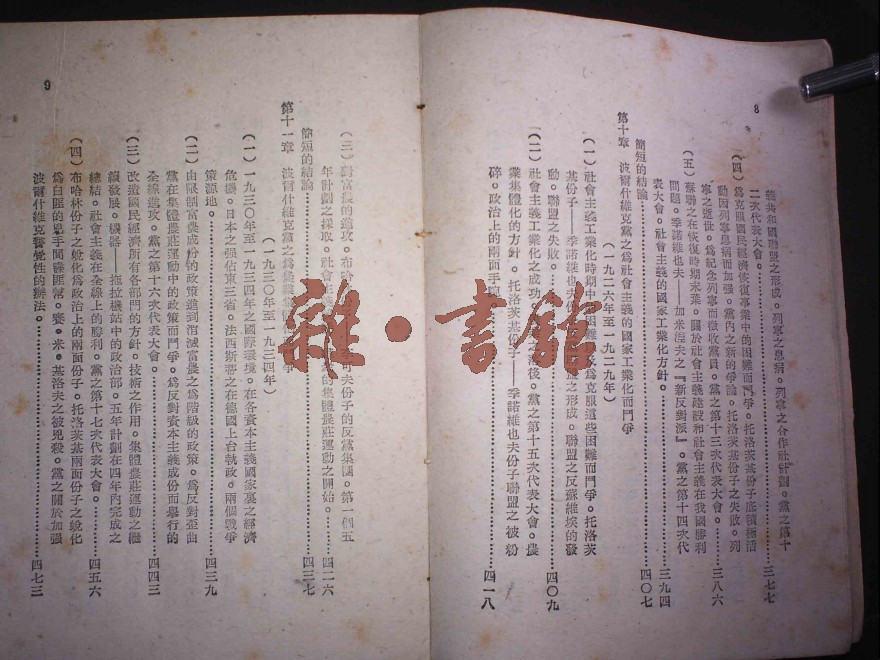 8
義共和國聯盟之形成。列寧之患病。列寧之合作社計劃。黨之第十
二次代表大會。……三七七
(四)爲克服國民經濟恢復事業中的困難而鬥爭。托洛茨基份子底積極活
動因列寧患病而加强。黨內之新的爭論。托洛茨基份子之失敗。列
寧之逝世。爲紀念列寧而徵收黨員。黨之第十三次代表大會。……三八六
(五)蘇聯之在恢復時期末葉。關於社會主義建設和社會主義在我國勝利
問題。季諾維也夫——加米湼夫之『新反對派』。黨之第十四次代
表大會。社會主義的國家工業化方針。……三九四
簡短的結論……四〇七
第十章 波爾什維克黨之爲社會主義的國家工業化而鬥爭
(一九二六年至一九二九年)
(一)社會主義工業化時期中的困難以及爲克服這些困難而鬥爭。托洛茨
基份子——季諾維也夫份子反黨聯盟之形成。聯盟之反蘇維埃的發
動。聯盟之失敗。……四〇九
(二)社會主義工業化之成功。農業之落後。黨之第十五次代表大會。農
業集體化的方針。托洛茨基份子——季諾維也夫份子聯盟之被粉
碎。政治上的兩面手腕。……四一八
9
(三)對富農的進攻。布哈 可夫份子的反黨集團。第一個五
年計劃之採取。社會主義 的集體農莊運動之開始。……四二六
簡短的結論……四三七
第十一章 波爾什維克黨之爲農業集體 爭
(一九三〇年至一九三四年)
(一)一九三〇年至一九三四年之國際環境。在各資本主義國家裏之經濟
危機。日本之强佔東三省。法西斯蒂之在德國上台執政。兩個戰爭
策源地。……四三九
(二)由限制富農成份的政策進到消滅富農之爲階級的政策。爲反對歪曲
黨在集體農莊運動中的政策而鬥爭。爲反對資本主義成份而舉行的
全線進攻。黨之第十六次代表大會。……四四三
(三)改造國民經濟所有各部門的方針。技術之作用。集體農莊運動之繼
續發展。機器——拖拉機站中的政治部。五年計劃在四年內完成之
總結。社會主義在全線上的勝利。黨之第十七次代表大會。……四五六
(四)布哈林份子之蛻化爲政治上的兩面份子。托洛茨基兩面份子之蛻化
爲白匪的兇手間諜匪幫。賽。米。基洛夫之被兇殺。黨之關於加强
波爾什維克警覺性的辦法。……四七三
雜·書館